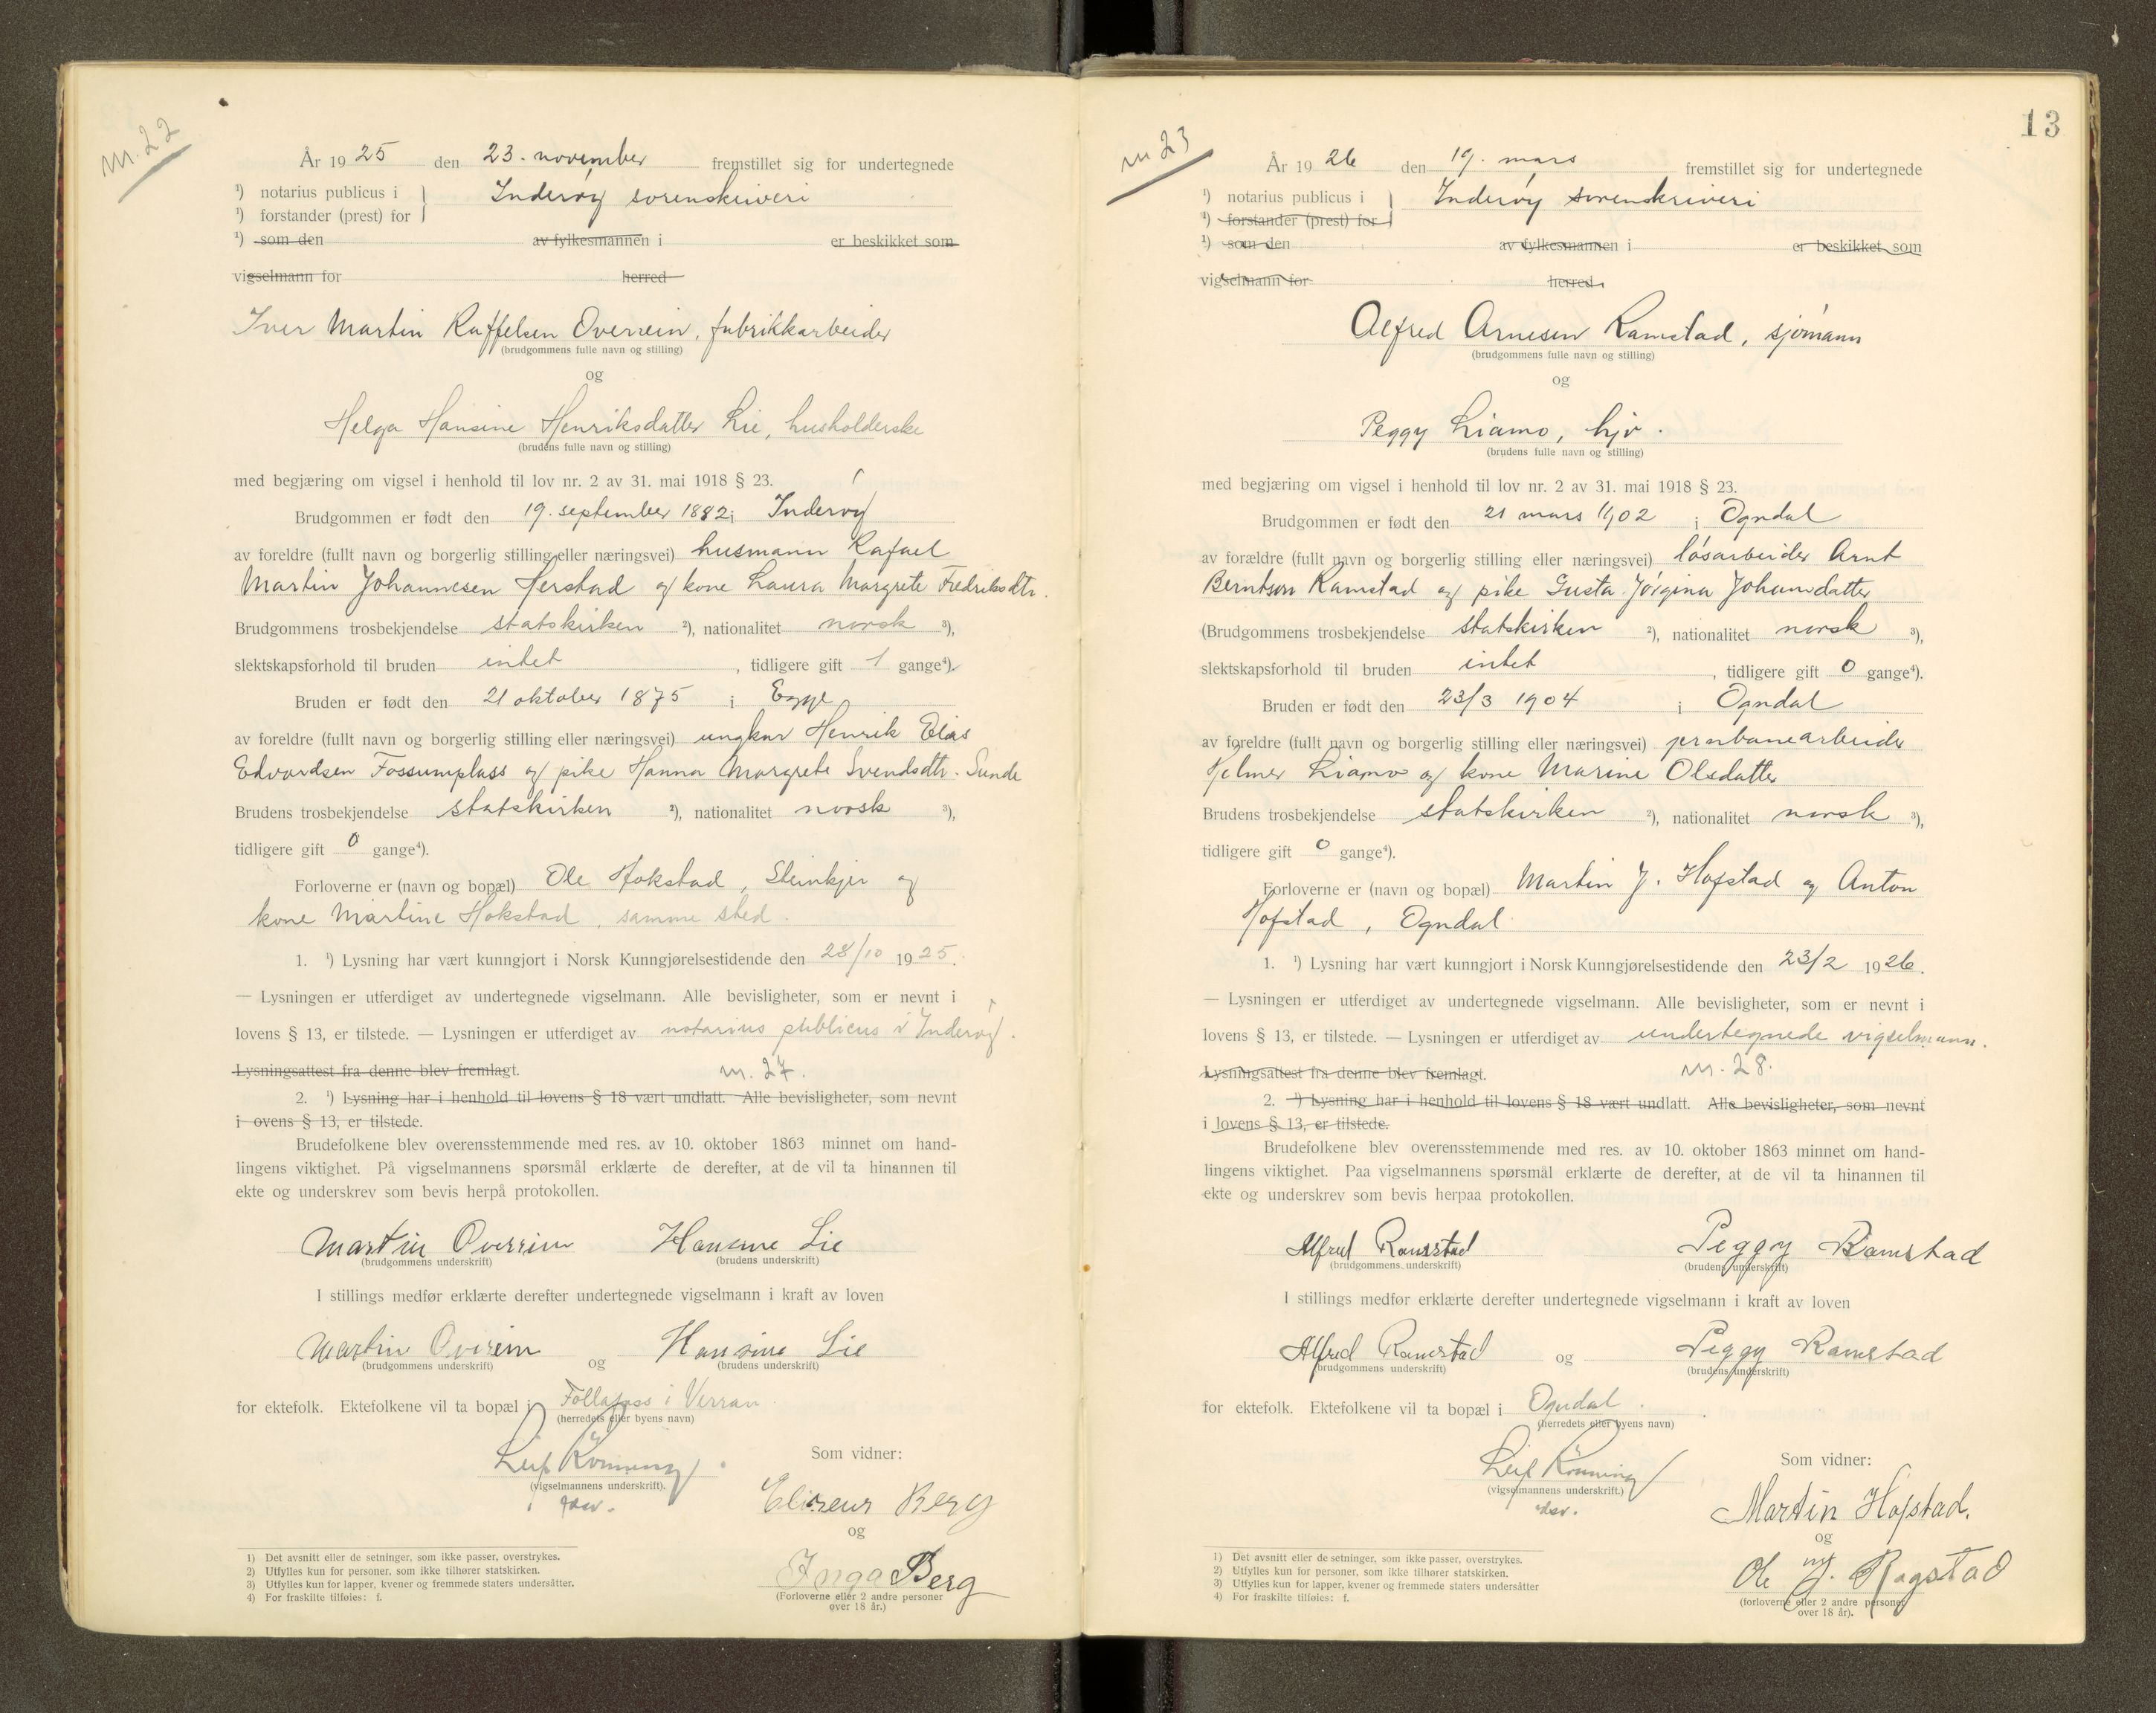 nr. 22
År 1925 den 23. november fremstillet sig for undertegnede
¹) notarius publicus i
¹) forstander (prest) for
Inderøy sorenskriveri
¹) som den av fylkesmannen i er beskikket som
vigselmann for herred
Iver Martin Raffelsen Overrein, fabrikkarbeider
(brudgommens fulle navn og stilling)
og
Helga Hansine Henriksdatter Lie, husholderske
(brudens fulle navn og stilling)
med begjæring om vigsel i henhold til lov nr. 2 av 31. mai 1918 § 23.
Brudgommen er født den 19. september 1882 i Inderøy
av foreldre (fullt navn og borgerlig stilling eller næringsvei) husmann Rafael
Martin Johannesen Herstad og kone Laura Margrete Fredriksdtr.
Brudgommens trosbekjendelse statskirken ²), nationalitet norsk ³),
slektskapsforhold til bruden intet, tidligere gift 1 gange⁴).
Bruden er født den 21 oktober 1875 i Egge
av foreldre (fullt navn og borgerlig stilling eller næringsvei) ungkar Henrik Elias
Edvardsen Fossumplass og pike Hanna Margrete Svendsdtr. Sunde
Brudens trosbekjendelse statskirken ²), nationalitet norsk ³),
tidligere gift 0 gange⁴).
Forloverne er (navn og bopæl) Ole Hokstad, Steinkjer og
kone Martine Hokstad, samme sted.
1. ¹) Lysning har vært kunngjort i Norsk Kunngjørelsestidende den 28/10 1925.
— Lysningen er utferdiget av undertegnede vigselmann. Alle bevisligheter, som er nevnt i
lovens § 13, er tilstede. — Lysningen er utferdiget av notarius publicus i Inderøy.
Lysningsattest fra denne blev fremlagt. nr. 27.
2. ¹) Lysning har i henhold til lovens § 18 vært undlatt. Alle bevisligheter, som nevnt
i ovens § 13, er tilstede.
Brudefolkene blev overensstemmende med res. av 10. oktober 1863 minnet om hand-
lingens viktighet. På vigselmannens spørsmål erklærte de derefter, at de vil ta hinannen til
ekte og underskrev som bevis herpå protokollen.
Martin Overrein Hansine Lie
(brudgommens underskrift) (brudens underskrift)
I stillings medfør erklærte derefter undertegnede vigselmann i kraft av loven
Martin Overrein og Hansine Lie
(brudgommens underskrift) (brudens underskrift)
for ektefolk. Ektefolkene vil ta bopæl i Follafoss i Verran
(herredets eller byens navn)
Leif Rönning
(vigselmannens underskrift).
Som vidner:
Berg
og
Inga Berg
(Forloverne eller 2 andre personer
over 18 år.)
1) Det avsnitt eller de setninger, som ikke passer, overstrykes.
2) Utfylles kun for personer, som ikke tilhører statskirken.
3) Utfylles kun for lapper, kvener og fremmede staters undersåtter.
4) For fraskilte tilføies: f.
13
nr 23
År 1926 den 19. mars fremstillet sig for undertegnede
¹) notarius publicus i
¹) forstander (prest) for
Inderøy sorenskriveri
¹) som den av fylkesmannen i er beskikket som
vigselmann for herred
Alfred Arnesen Ramstad, sjømann
(brudgommens fulle navn og stilling)
og
Peggy Liamo, hjv.
(brudens fulle navn og stilling)
med begjæring om vigsel i henhold til lov nr. 2 av 31. mai 1918 § 23.
Brudgommen er født den 21 mars 1902 i Ogndal
av forældre (fullt navn og borgerlig stilling eller næringsvei) løsarbeider Arnt
Berntson Ramstad og pike Gusta Jørgina Johansdatter
(Brudgommens trosbekjendelse statskirken ²), nationalitet norsk ³),
slektskapsforhold til bruden intet, tidligere gift 0 gange⁴).
Bruden er født den 23/3 1904 i Ogndal
av foreldre (fullt navn og borgerlig stilling eller næringsvei) jernbanearbeider
Helmer Liamo og kone Marine Olsdatter
Brudens trosbekjendelse statskirken ²), nationalitet norsk ³),
tidligere gift 0 gange⁴).
Forloverne er (navn og bopæl) Martin J. Hofstad og Anton
Hofstad, Ogndal
1. ¹) Lysning har vært kunngjort i Norsk Kunngjørelsestidende den 23/2 1926.
— Lysningen er utferdiget av undertegnede vigselmann. Alle bevisligheter, som er nevnt i
lovens § 13, er tilstede. — Lysningen er utferdiget av undertegnede vigselmann.
Lysningsattest fra denne blev fremlagt. nr. 28.
2. ¹) Lysning har i henhold til lovens § 18 vært undlatt. Alle bevisligheter, som nevnt
i lovens § 13, er tilstede.
Brudefolkene blev overensstemmende med res. av 10. oktober 1863 minnet om hand-
lingens viktighet. Paa vigselmannens spørsmål erklærte de derefter, at de vil ta hinannen til
ekte og underskrev som bevis herpaa protokollen.
Alfred Ramstad Peggy Ramstad
(brudgommens underskrift) (brudens underskrift)
I stillings medfør erklærte derefter undertegnede vigselmann i kraft av loven
Alfred Ramstad og Peggy Ramstad
(brudgommens underskrift) (brudens underskrift)
for ektefolk. Ektefolkene vil ta bopæl i Ogndal.
(herredets eller byens navn)
Leif Rönning
(vigselmannens underskrift.)
Som vidner:
Martin Hofstad.
og
Ole J. Rogstad
(forloverne eller 2 andre personer
over 18 år).
1) Det avsnitt eller de setninger, som ikke passer, overstrykes.
2) Utfylles kun for personer, som ikke tilhører statskirken.
3) Utfylles kun for lapper, kvener og fremmede staters undersåtter
4) For fraskilte tilføies: f.